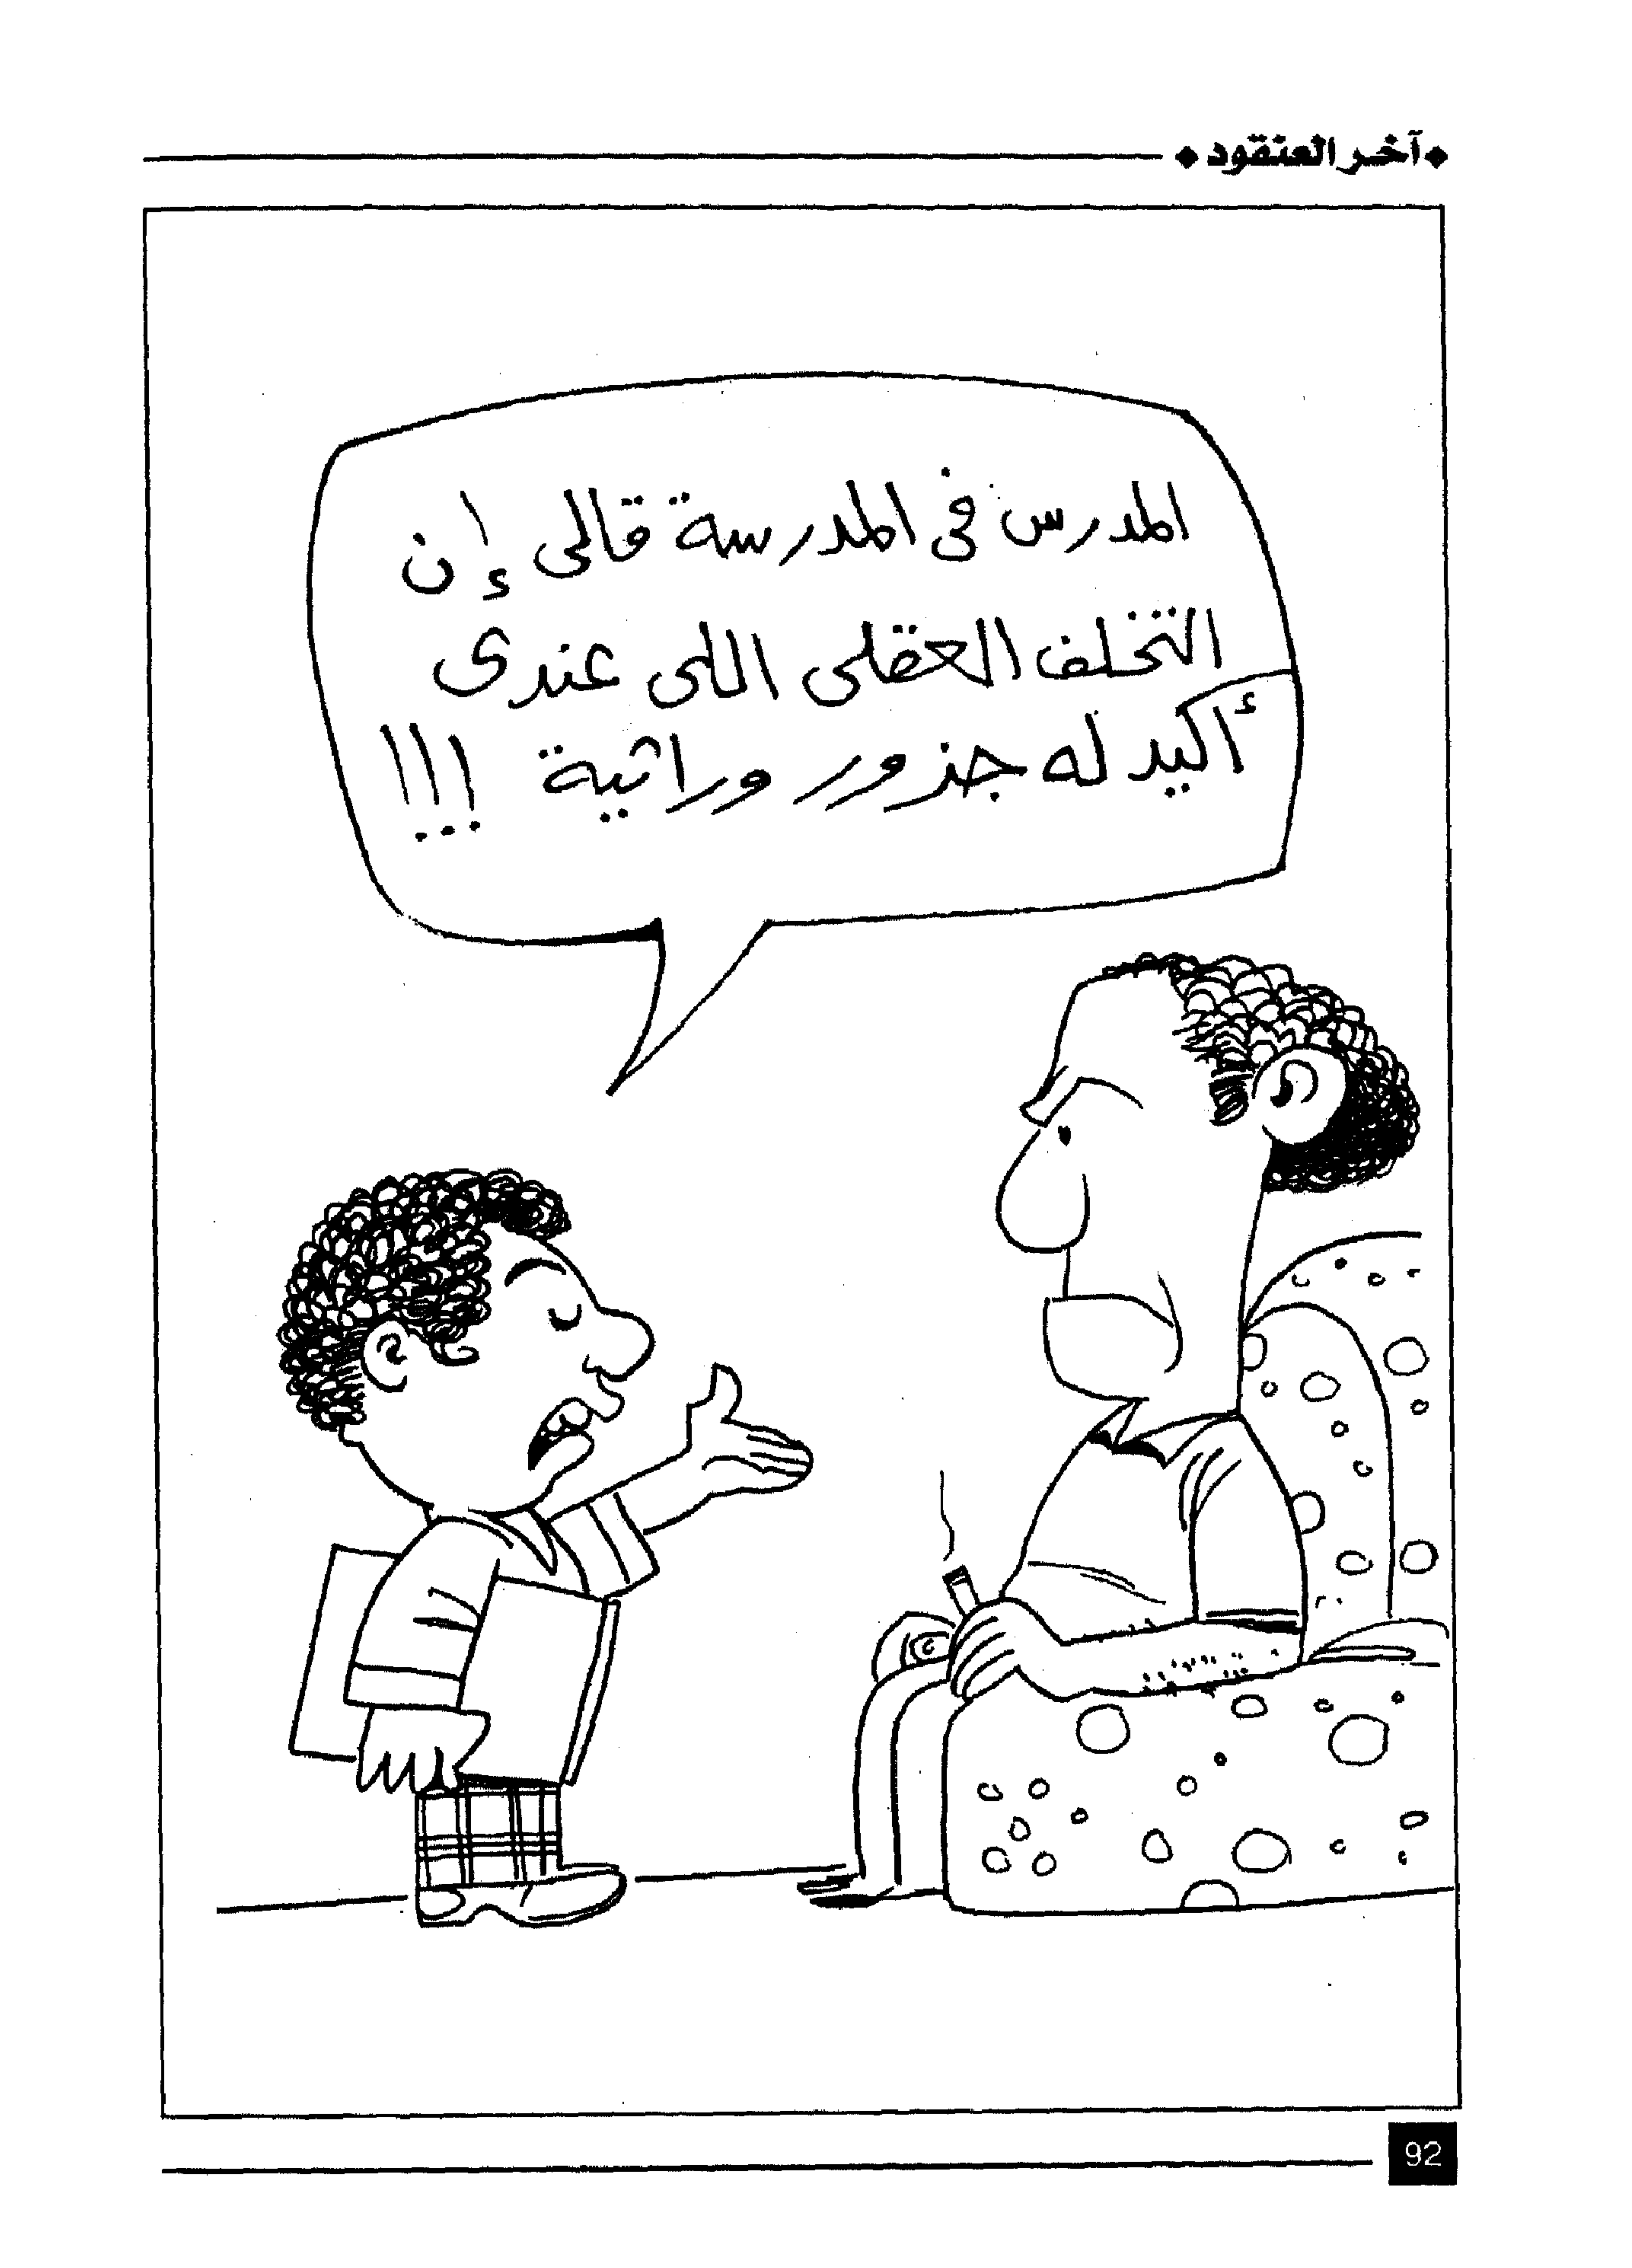 آخر العنقود
المدرس فى المدرسة قالى إن
التخلف العقلى اللى عندى
أكيد له جذور وراثية !!!
92